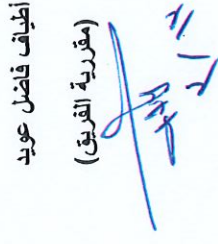 أطياف فاضل عويد
(مقررية الفريق)